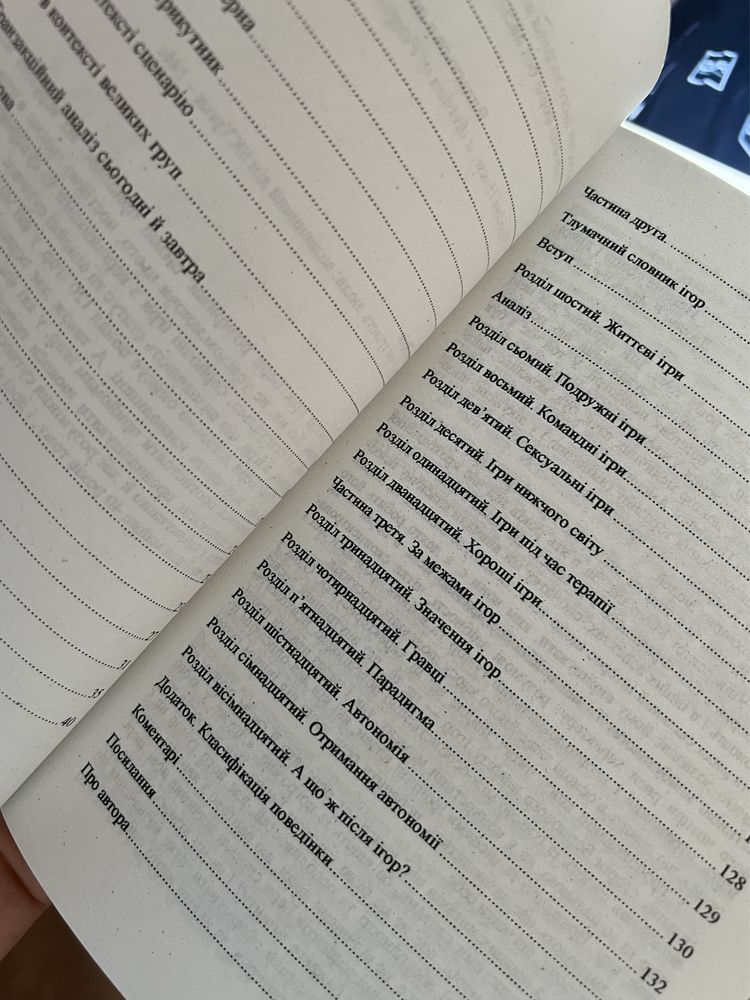 ерна
рикутник
тексті сценарію
в контексті великих груп
ранзакційний аналіз сьогодні й завтра
ова
31
35
40
Частина друга
Тлумачний словник ігор
Вступ
Розділ шостий. Життєві ігри
Аналіз
Розділ сьомий. Подружні ігри
Розділ восьмий. Командні ігри
Розділ дев’ятий. Сексуальні ігри
Розділ десятий. Ігри нижчого світу
Розділ одинадцятий. Ігри під час терапії
Розділ дванадцятий. Хороші ігри
Частина третя. За межами ігор
Розділ тринадцятий. Значення ігор
Розділ чотирнадцятий. Гравці
Розділ п’ятнадцятий. Парадигма
Розділ шістнадцятий. Автономія
Розділ сімнадцятий. Отримання автономії
Розділ вісімнадцятий. А що ж після ігор?
Додаток. Класифікація поведінки
Коментарі
Посилання
Про автора
128
129
130
132